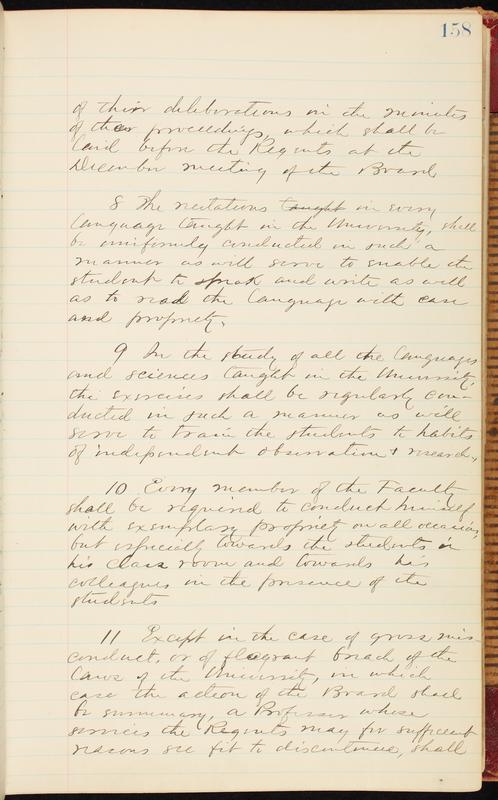 158
of their deliberations in the minutes
of their proceedings, which shall be
laid before the Regents at the
December meeting of the Board
8 The recitations taught in every
Language taught in the University, shall
be uniformly conducted in such a
manner as will serve to enable the
student to speak and write as well
as to read the Language with ease
and propriety.
9 In the study of all the Languages
and sciences taught in the University,
the exercises shall be regularly con-
ducted in such a manner as will
serve to train the students to habits
of independent observation & research,
10 Every member of the Faculty
shall be required to conduct himself
with exemplary propriety on all occasions,
but especially towards the students in
his class room and towards his
colleagues in the presence of the
students
11 Except in the case of gross mis-
conduct, or of flagrant breach of the
Laws of the University, in which
case the action of the Board shall
be summary, a Professor whose
services the Regents may for sufficient
reasons see fit to discontinue, shall